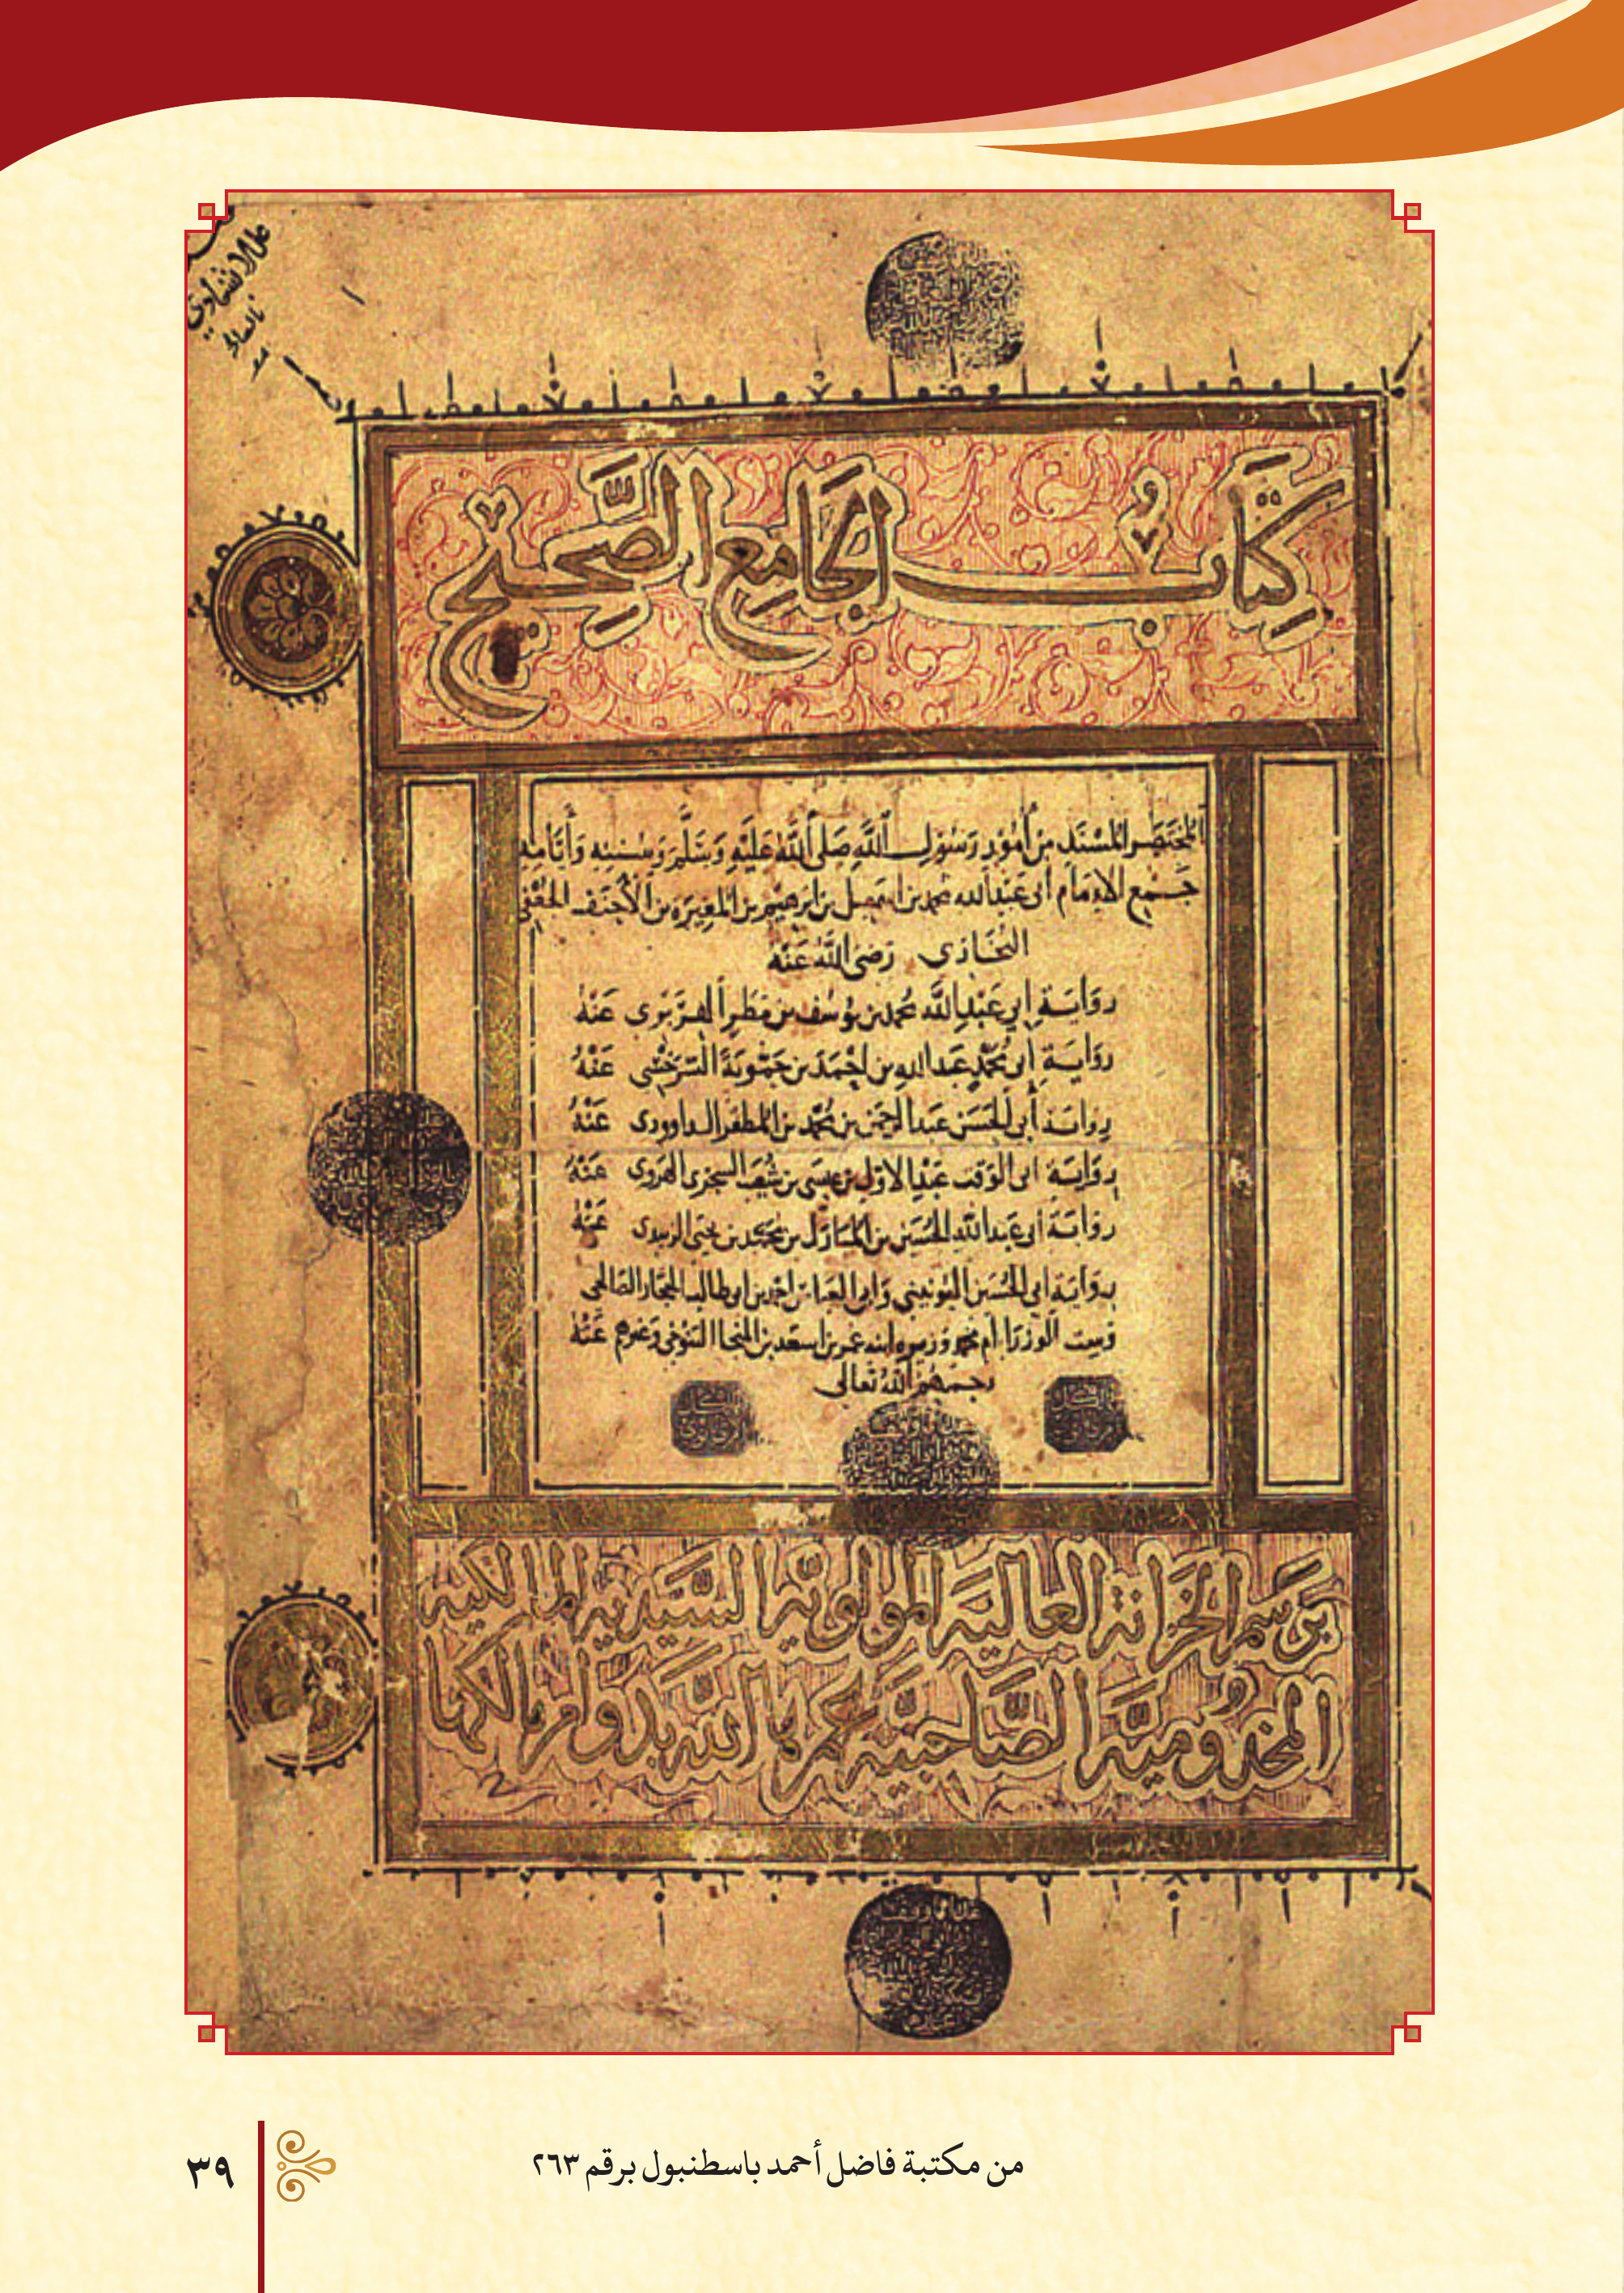 كِتَابُ الجَامِعِ الصَّحِيْحِ
المُخْتَصَر المُسْنَدِ مِنْ أُمُوْرِ رَسُوْلِ اللَّهِ صَلى اللَّهُ عَلَيْهِ وَسَلَّمَ وَسُنَنِهِ وَأَيَّامِهِ
جَمْع الإِمَام أبى عَبْدِ الله محمد بن اسمعيل بن ابرهيم بن المغِيْرَة بن الأحنف الجعْفي
البُخَارى رَضى اللَّهُ عَنْهُ
روَايَة ابي عَبْدِ اللَّه محمد بن يُوسُف بن مَطَر الفرَبْرى عَنْهُ
روَايَة ابى مُحمَّدٍ عَبد الله بن احْمَدَ بن حَمُّويَة السّرَخْسِى عَنْهُ
روايَة أبى الحَسَن عَبد الرحمَن بن مُحمَّد بن المظفر الداوودى عَنْهُ
روَايَة ابى الوَقت عَبْد الاوّل بن عيسَى بن شُعَيب السجزى الهَروى عَنْهُ
روَايَة أبى عَبد اللَّهِ الحُسَيْن بن المبَارَك بن محمَّد بن يحيى الزبيدى عَنْهُ
روَايَة ابى الحُسَيْن اليُونيني وَابى العَبَاس احمد بن ابى طالب الحجّار الصَّالحى
وَست الوُزرَا ام محمد وزيره ابنه عمر بن اسعد بن المنجا التنُوخى وَغيرهم عَنْهُ
رحمَهُم اللَّهُ تعَالى
بِرَسْم الخزَانَة العَاليَة المولَويَّة السَّيّديَّة المَالكيَّة
المخدُوميَّة الصَّاحبيَّة عَمرهَا اللهُ بدَوَام مالكهَا
من مكتبة فاضل أحمد باسطنبول برقم ٢٦٣
٣٩